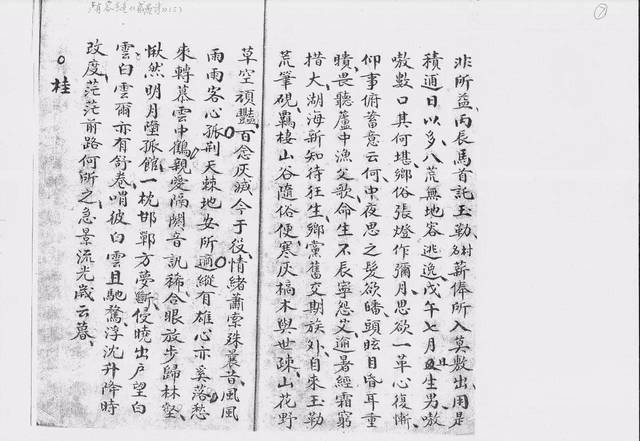 非所益、丙辰馬首託玉勒村薪俸所入莫敷出用是
積逋日以多八荒無地容逃逸、戊午七月且生男嗷
嗷數口其何堪鄉俗張燈作彌月思欲一革心復慚、
仰事俯蓄意云何中夜思之髮欲皤、頭眩目昏耳重
聵、畏聽蘆中漁父歌、命生不辰寧怨艾、逾暑經霜窮
措大、湖海新知待狂生、鄉黨舊交期族外、自來玉勒
荒筆硯、羈棲山谷隨俗便、寒灰槁木與世疎、山花野
草空頑豔、百念灰滅今于役、情緒蕭索殊曩昔、風風
雨雨客心孤、荆天棘地安所適、縱有雄心亦奚落、愁
來轉慕雲中鶴、親愛隔闊音訊稀、念眼放步歸林壑、
愀然明月墮孤館、一枕邯鄲方夢斷、侵曉出戶望白
雲、白雲爾亦有舒卷、喟彼白雲且馳騖、浮沈升降時
改度、茫茫前路何所之、急景流光歲云暮、
桂